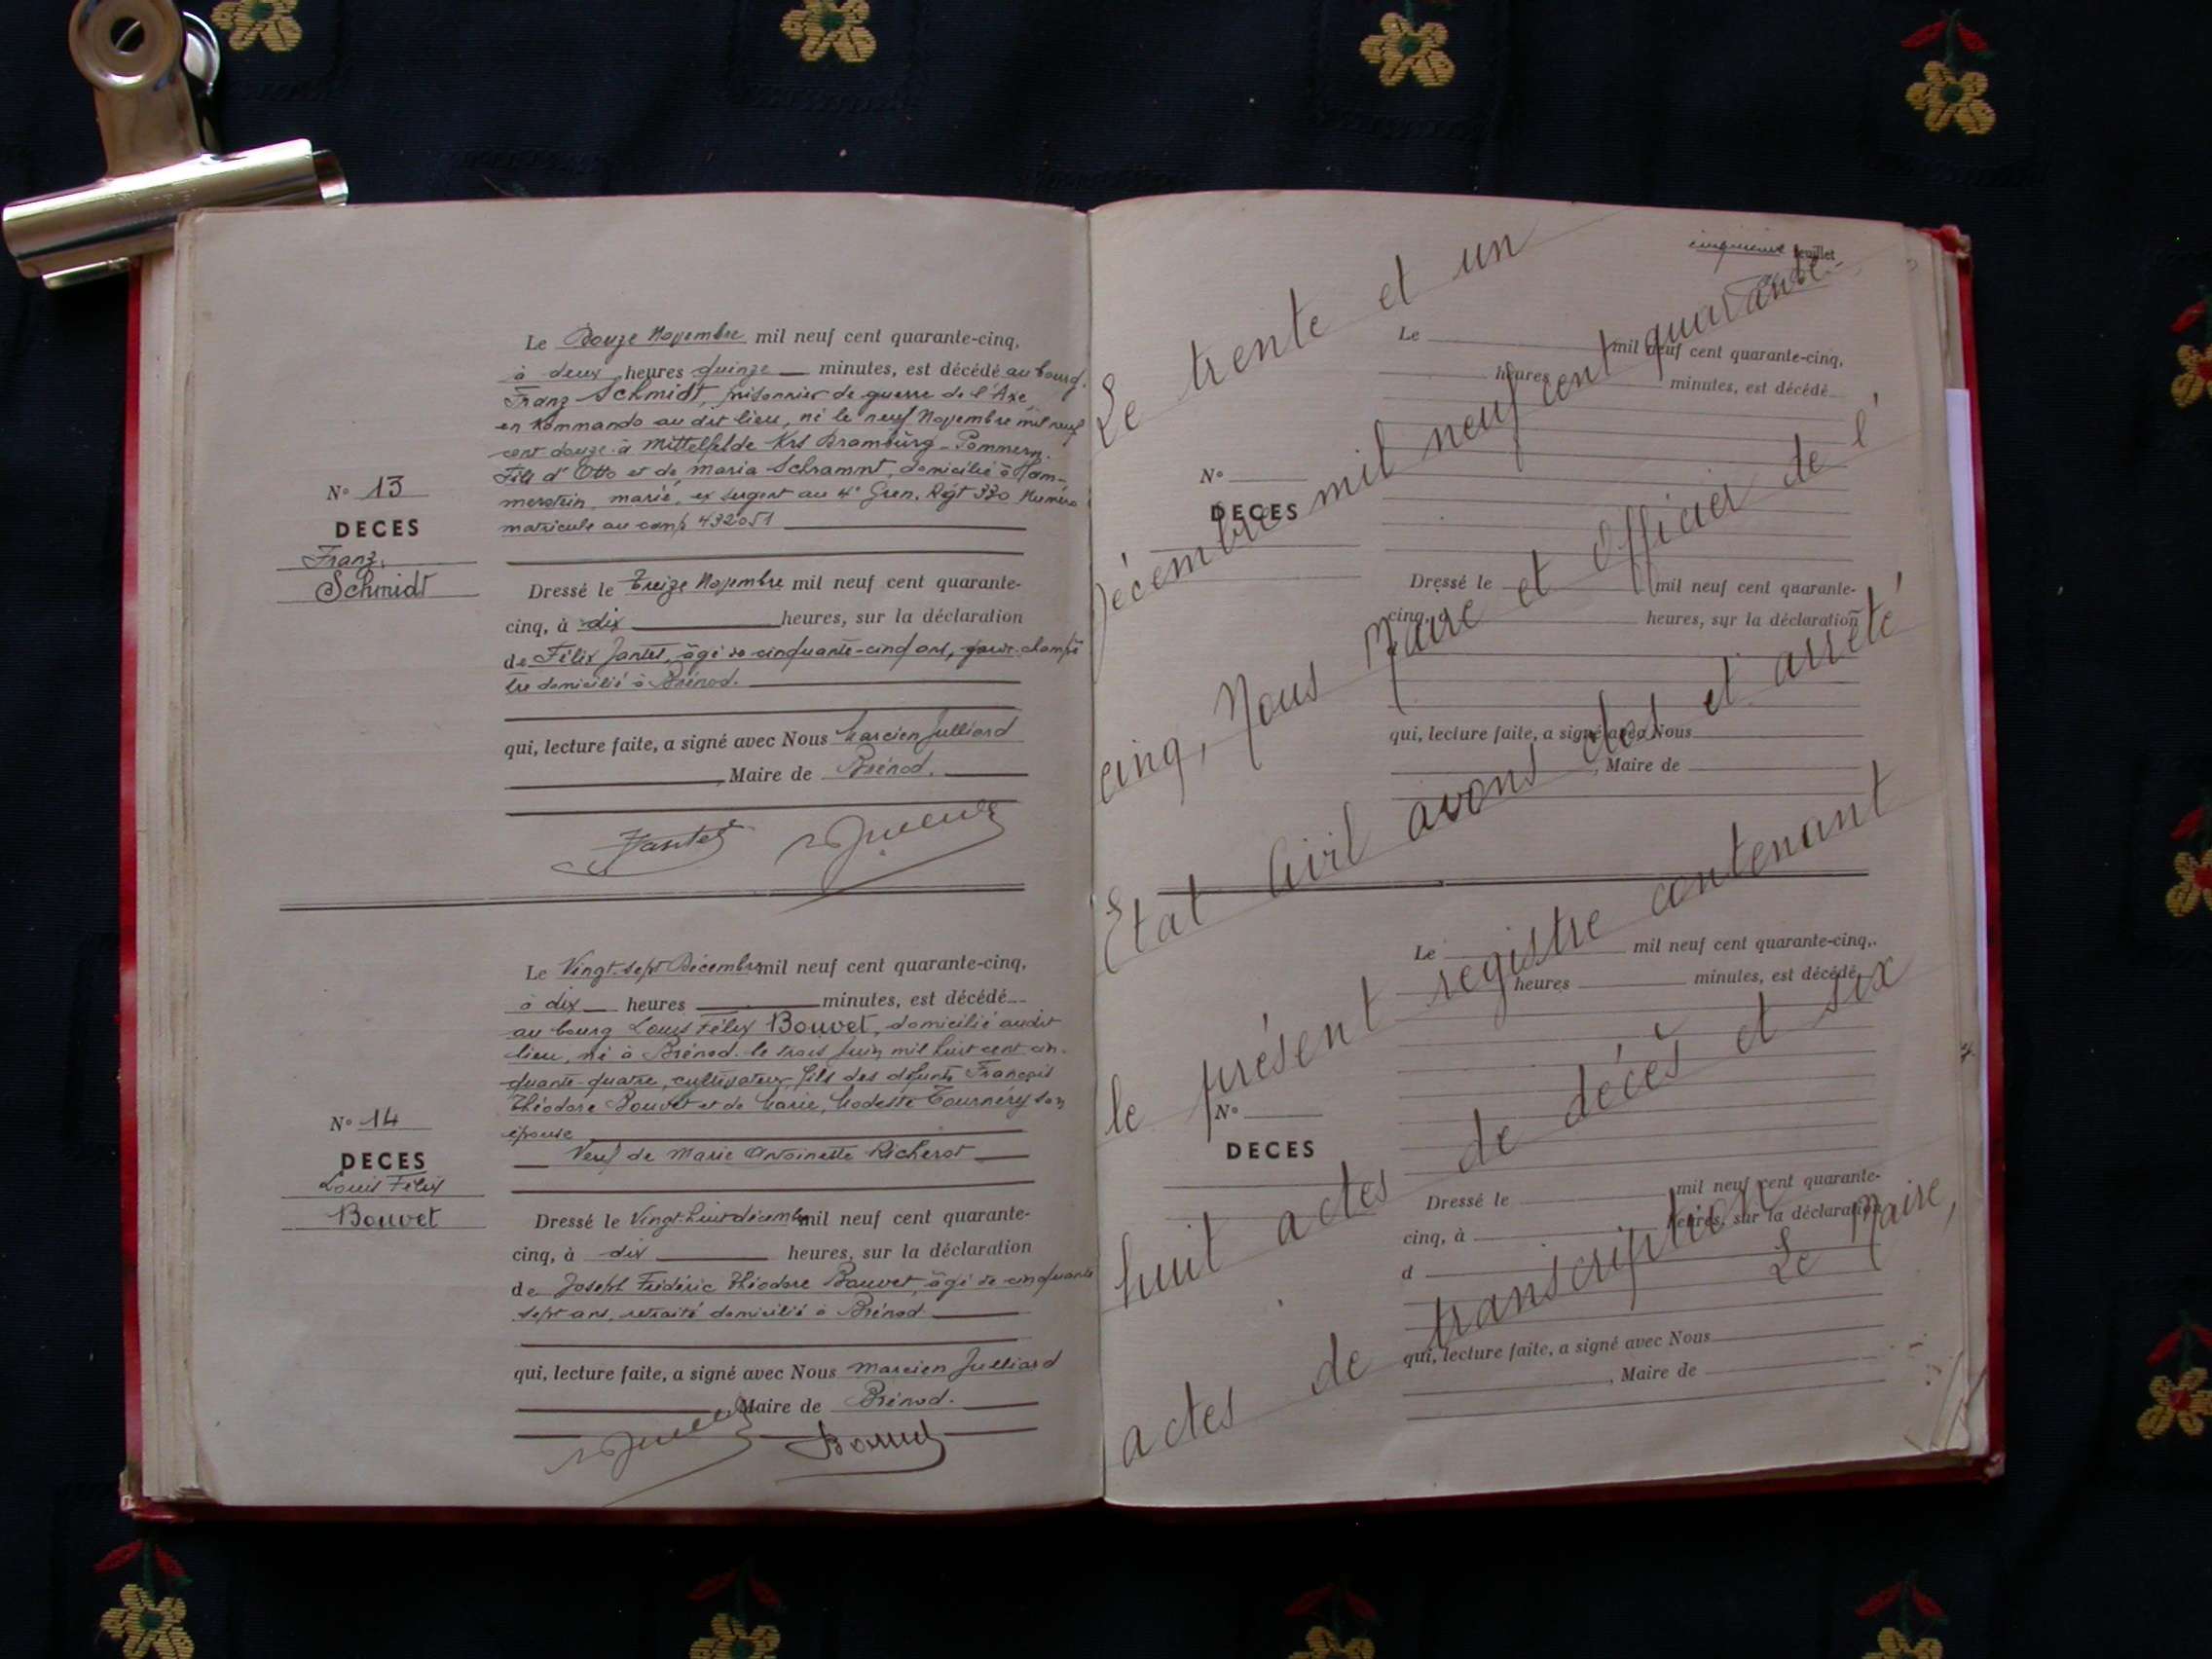 Le Douze Novembre mil neuf cent quarante-cinq,
à deux heures quinze minutes, est décédé au bourg.
Franz Schmidt, prisonnier de guerre de l'Axe
en Kommando au dit lieu, né le neuf Novembre mil neuf
cent douze à Mittelfelde Krs Dramburg - Pommern.
Fils d'Otto et de Maria Schrammt, domicilié à Ham-
merstein, marié, ex sergent au 4e Gren. Rgt 320 Numéro
matricule au camp 432051
N° 13
DECES
Franz
Schmidt
Dressé le Treize Novembre mil neuf cent quarante-
cinq, à dix heures, sur la déclaration
de Félix Jantet, âgé de cinquante-cinq ans, garde-champê
tre domicilié à Brénod.
qui, lecture faite, a signé avec Nous Marcien Julliard
, Maire de Brénod.
Jantet
Le Vingt-sept Décembre mil neuf cent quarante-cinq,
à dix heures minutes, est décédé
au bourg Louis Félix Bouvet, domicilié audit
lieu, né à Brénod le trois Juin mil huit cent cin-
quante-quatre, cultivateur, fils des défunts François
Théodore Bouvet et de Marie, Modeste Tournéry son
épouse
Veuf de Marie Antoinette Richerot
N° 14
DECES
Louis Félix
Bouvet
Dressé le Vingt-huit décembre mil neuf cent quarante-
cinq, à dix heures, sur la déclaration
de Joseph Frédéric Théodore Bouvet, âgé de cinquante
sept ans, retraité domicilié à Brénod
qui, lecture faite, a signé avec Nous Marcien Julliard
, Maire de Brénod.
Bouvet
cinquième feuillet
Le trente et un
Décembre mil neuf cent quarante
cinq, Nous Maire et Officier de l'
Etat Civil avons clos et arrêté
le présent registre contenant
huit actes de décès et six
actes de transcription
Le Maire,
Le mil neuf cent quarante-cinq,
heures minutes, est décédé
N°
DECES
Dressé le mil neuf cent quarante-
cinq, heures, sur la déclaration
qui, lecture faite, a signé avec Nous
, Maire de
Le mil neuf cent quarante-cinq,
heures minutes, est décédé
N°
DECES
Dressé le mil neuf cent quarante-
cinq, à heures, sur la déclaration
d
qui, lecture faite, a signé avec Nous
, Maire de